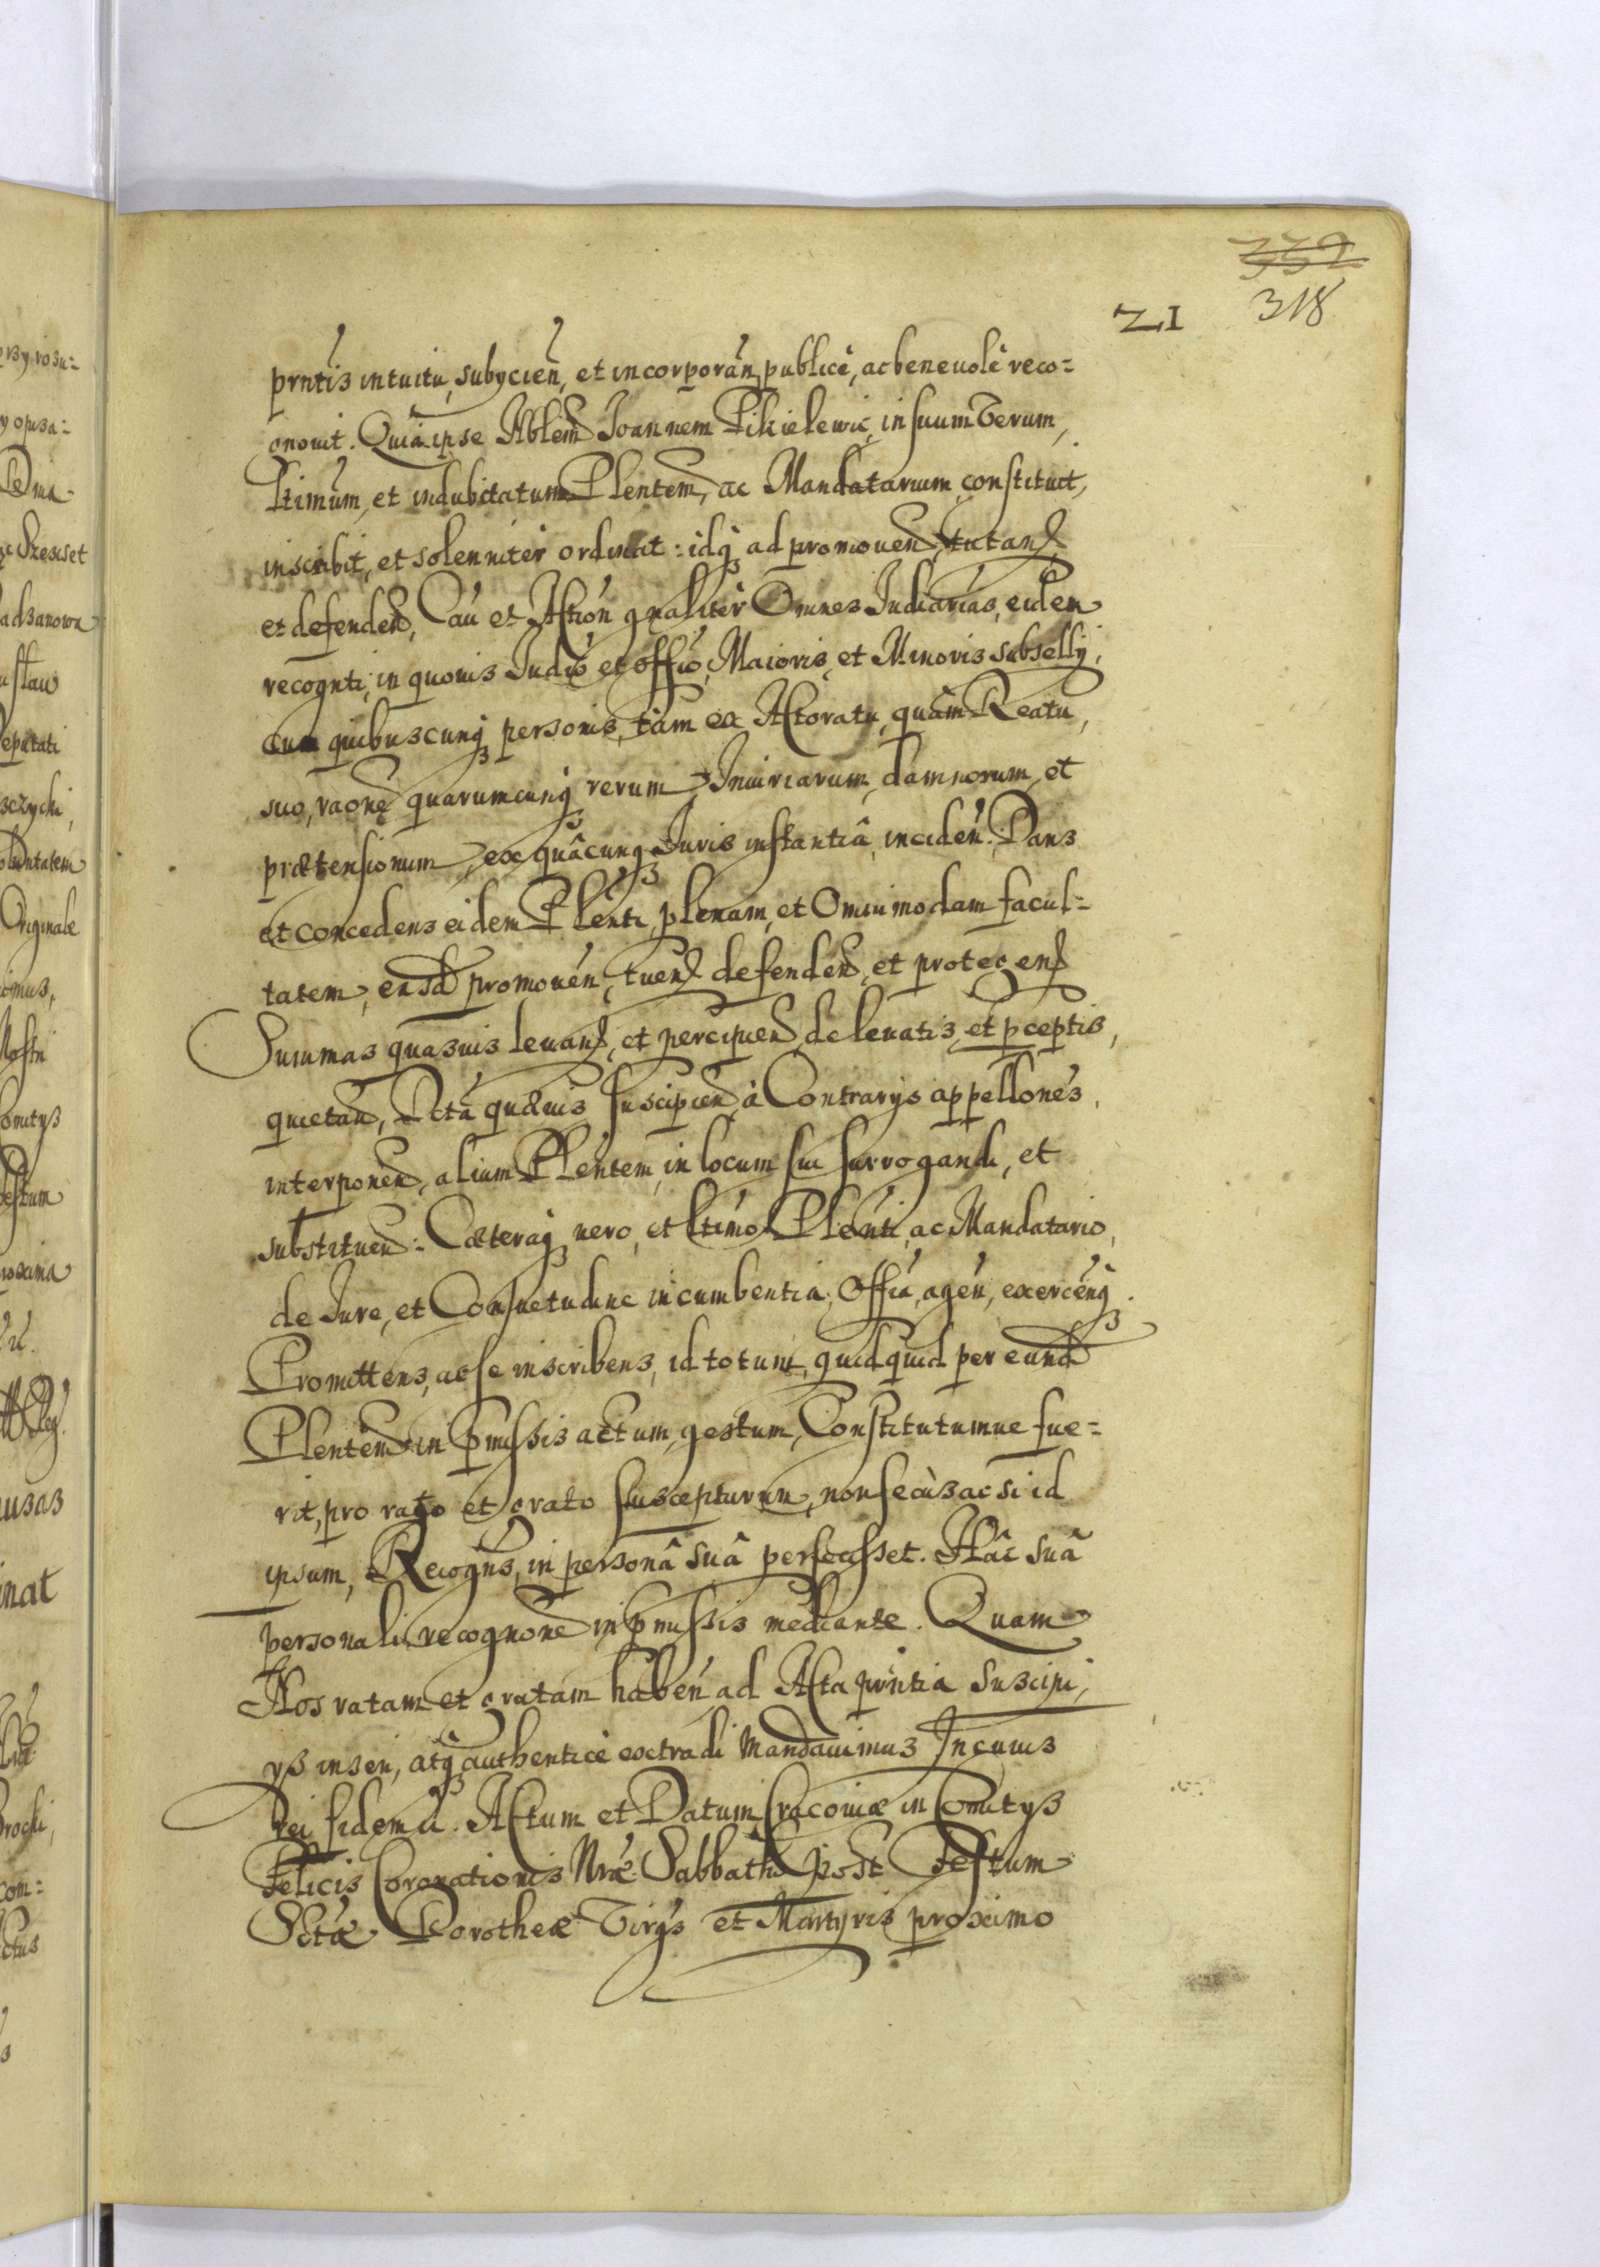 332
318
21
prntis intuitu, subycien, et incorporan, publicè, ac beneuolè reco=
gnouit. Quia ipse Nblem Joannem Pikielewic, in suum Verum,
Ltimum, et indubitatum Plentem, ac Mandatarium, constituit,
inscribit, et solenniter ordinat: idq ad promouen, tutand
et defenden, Cau et Action gnaliter Omnes Judiciarias, eidem
recognti, in quouis Judio et offio, Maioris, et Minoris subsellij,
cum quibuscunq personis, tàm ex Actoratu, quàm Reatu,
suo, raone quarumcunq rerum, Iniuriarum, damnorum, et
prætensionum, ex quâcunq Iuris instantiâ, inciden. Dans
et concedens eidem Plenti, plenam, et Omnimodam facul=
tatem, easd promouen, tuend defenden, et protegend
Summas quasuis leuand, et percipien, de leuatis, et pceptis,
quietan, Dcta quæuis suscipien, à Contrarys appellones,
interponen, alium Plentem, in locum sui surrogandi, et
substituen: Cæteraq vero, et Ltimo Plenti, ac Mandatario,
de Iure, et Consuetudine incumbentia, Offia, agen, exercenq.
Promittens, ac se inscribens, id totum, quidquid per eund
Plentem in pmissis actum, gestum, Constitutumue fue=
rit, pro rato et grato suscepturum, non secùs ac si id
ipsum, Recogns, in personâ suâ perfecisset. Hâc suâ
personali recognone in pmissis mediante. Quam
Nos ratam et gratam haben ad Acta prntia suscipi,
ys inseri, atq authenticè extradi Mandauimus In cuius
rei fidem &. Actum et Datum Cracouiæ in Comitys
Felicis Coronationis Nræ. Sabbatho post Festum
Sctæ Dorotheæ Virgs et Martyris proximo